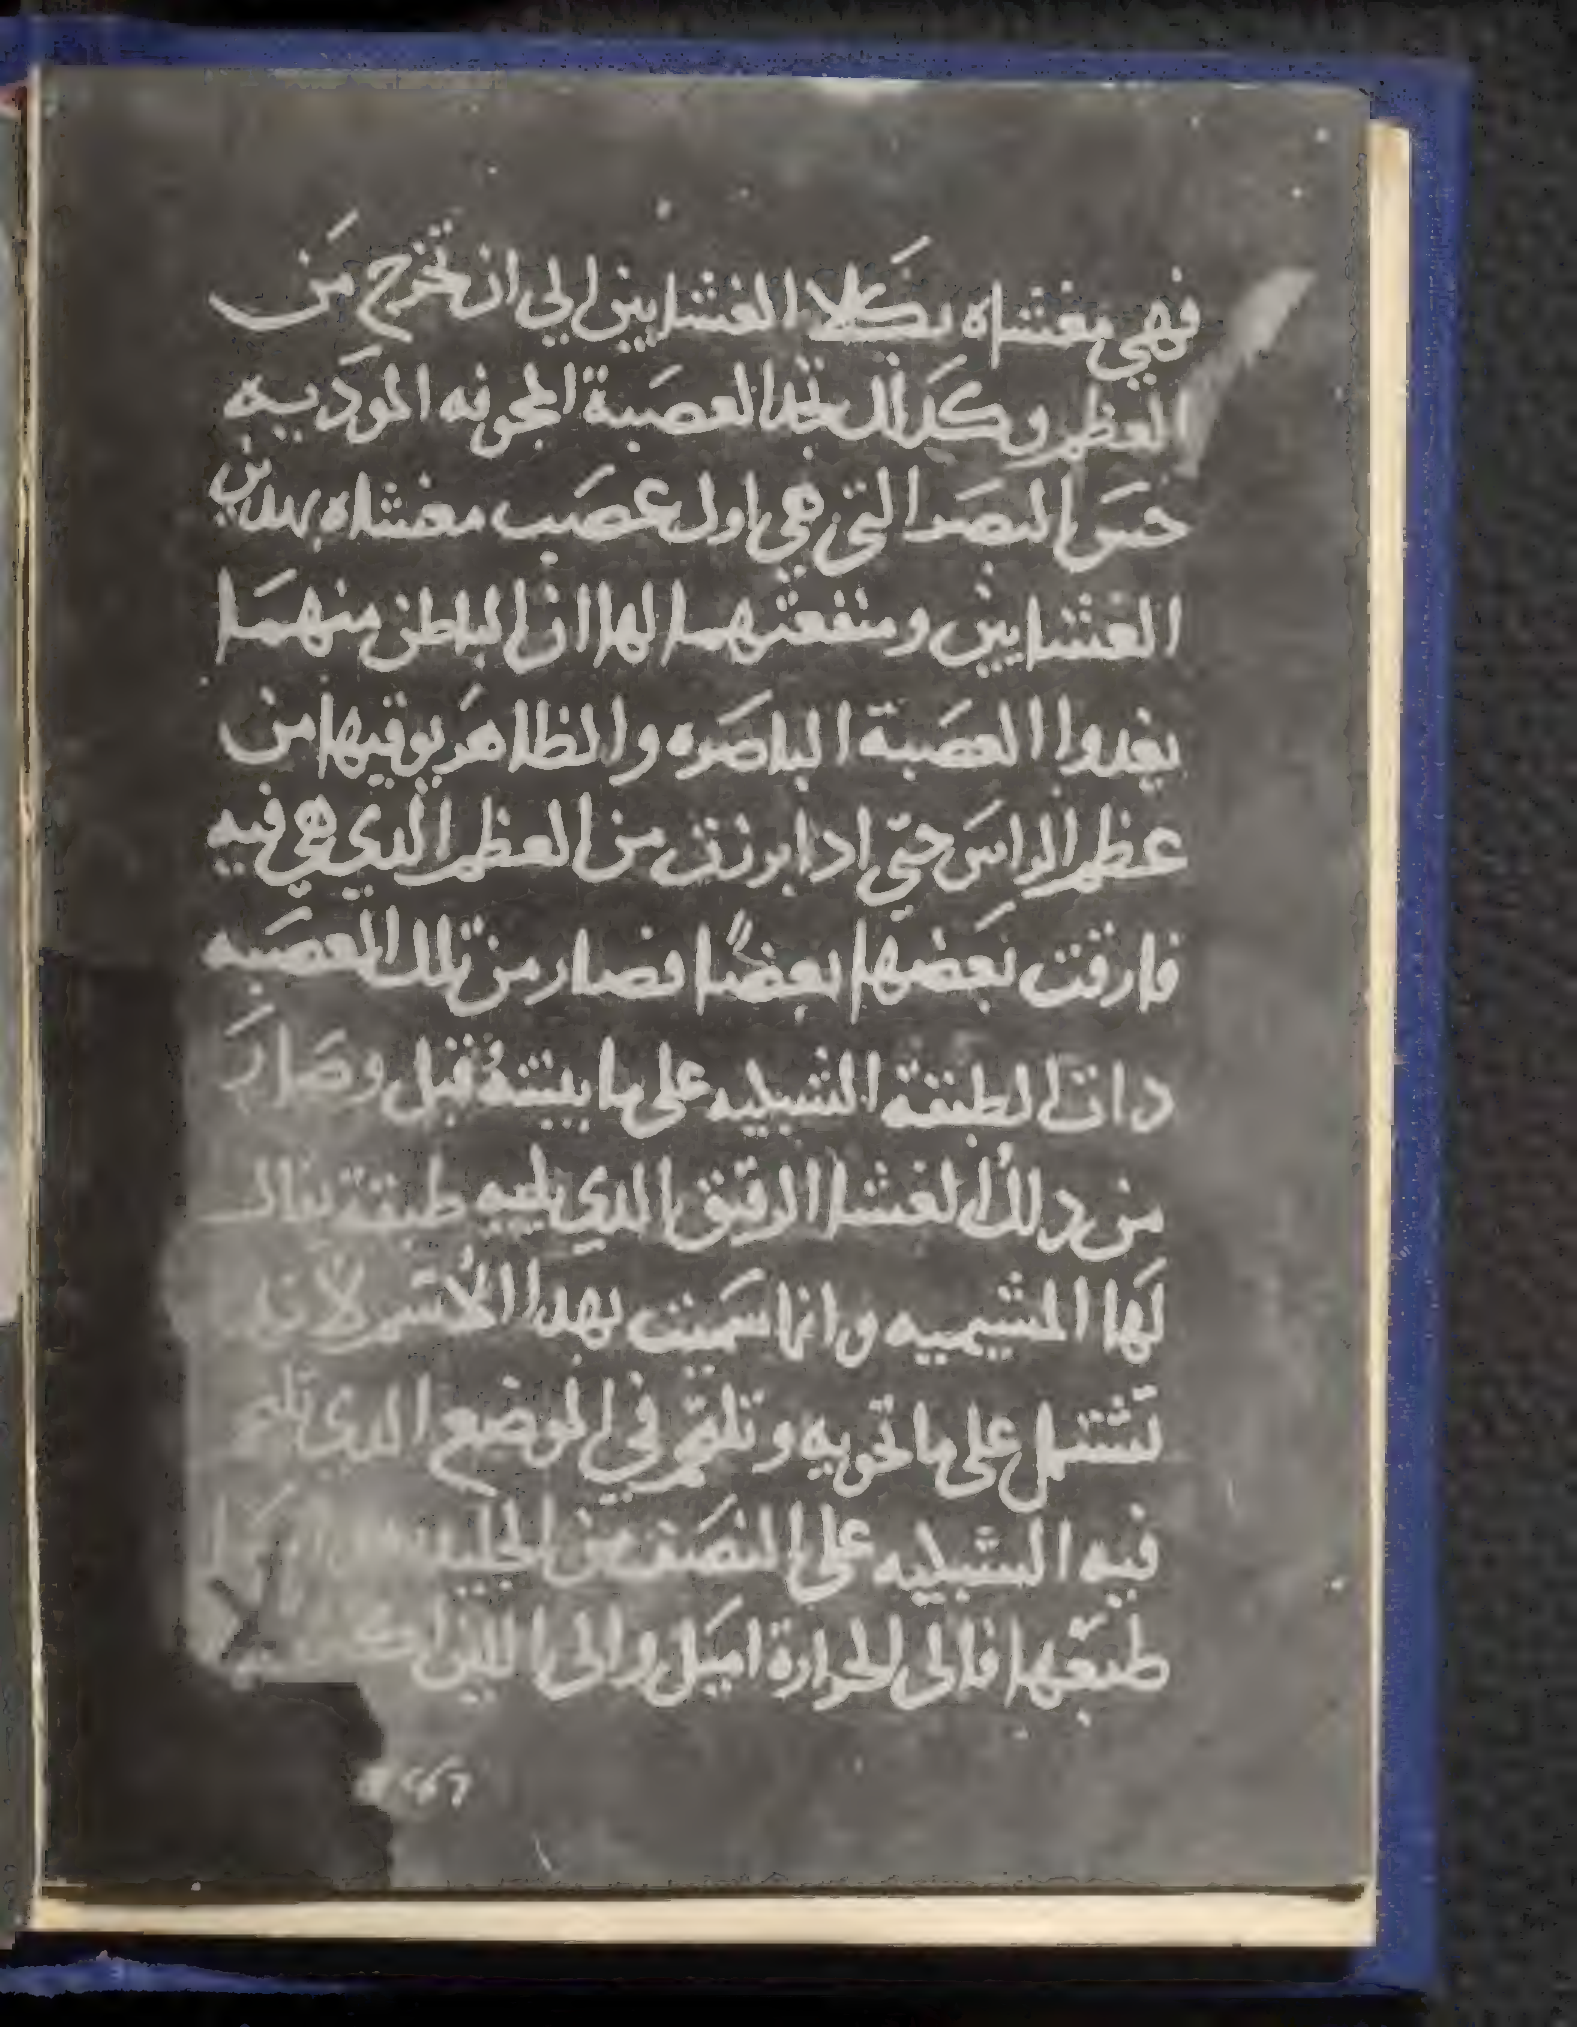 فهي مغشاه بكلا الغشايين الي ان تخرج من
العظم وكذلك نجد العصبة المجوفه الموديه
حس البصر التي هي اول عصب مغشاه بهدين
الغشايين ومنفعتهما لها ان الباطن منهما
يغدوا العصبة الباصره والظاهر يوقيها من
عظم الراس حتي ادا برزت من العظم الدي هي فيه
فارقت بعضها بعضًا فصار من تلك العصبه
دات الطبقة الشبكيه على ما بينته قبل وصار
من دلك الغشا الرقيق الدي يليه طبقة يقال
لها المشيميه وانما سميت بهدا الاسم لان
تشتمل على ما تحويه وتلتحم في الموضع الدي تلتحم
فيه الشبكيه على النصف من الجليديه
طبعها فالى الحرارة اميل والى اللين